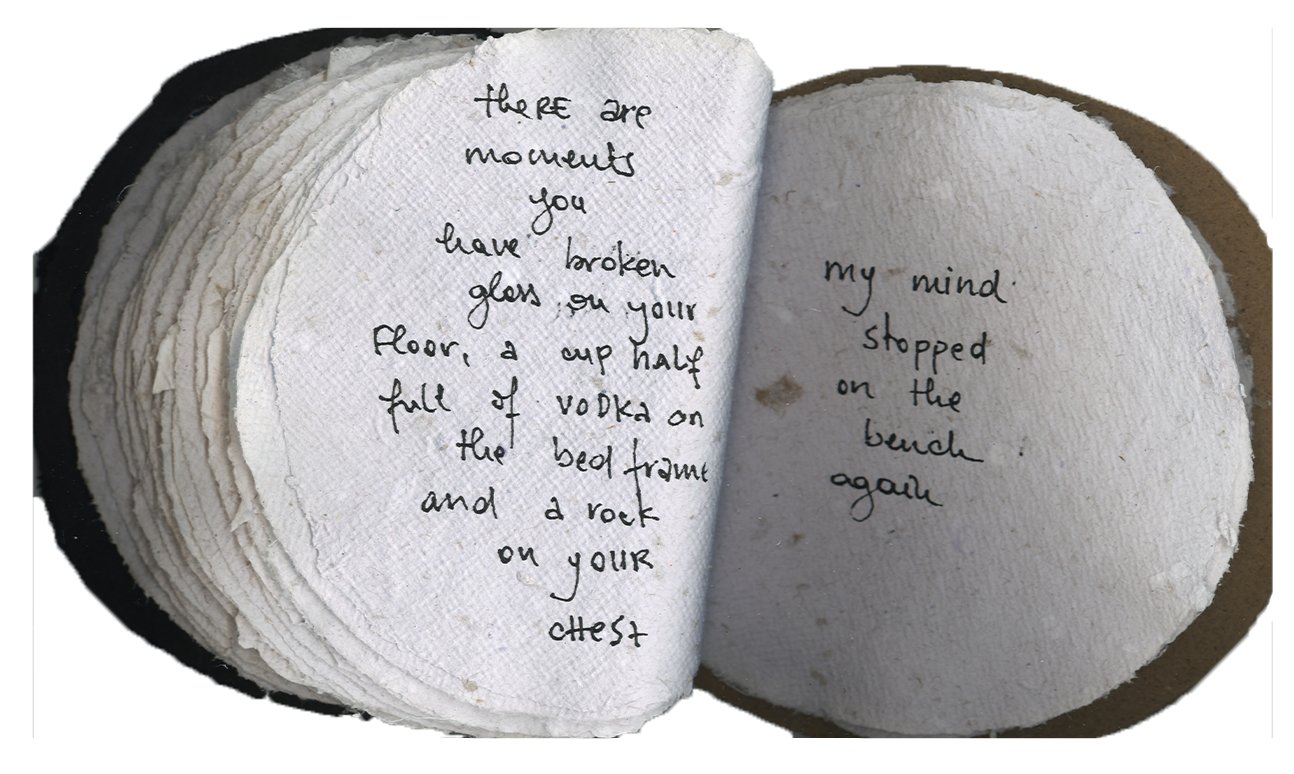 theRE are
moments
you
have broken
glass on your
Floor, a cup half
full of voDka on
the bed frame
and a rock
on youR
cHest
my mind
stopped
on the
bench
again